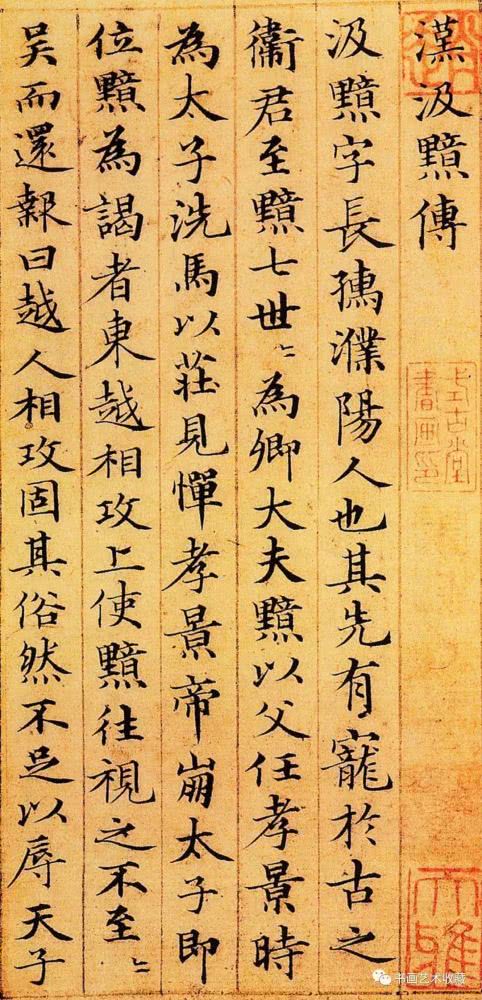 漢汲黯傳
汲黯字長孺濮陽人也其先有寵於古之
衞君至黯七世〻為卿大夫黯以父任孝景時
為太子洗馬以莊見憚孝景帝崩太子即
位黯為謁者東越相攻上使黯往視之不至〻
吳而還報曰越人相攻固其俗然不足以辱天子
式古堂
書畫印
书画艺术收藏